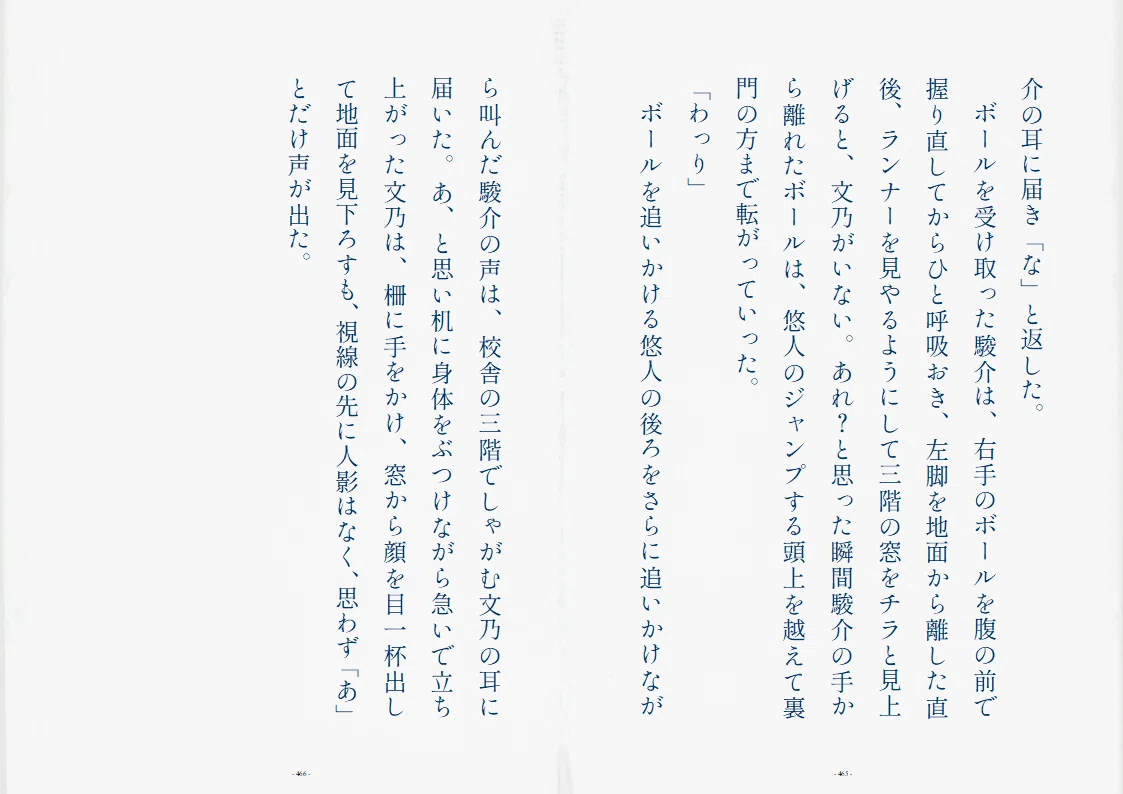 介の耳に届き「な」と返した。
ボールを受け取った駿介は、右手のボールを腹の前で
握り直してからひと呼吸おき、左脚を地面から離した直
後、ランナーを見やるようにして三階の窓をチラと見上
げると、文乃がいない。あれ？と思った瞬間駿介の手か
ら離れたボールは、悠人のジャンプする頭上を越えて裏
門の方まで転がっていった。
「わっり」
ボールを追いかける悠人の後ろをさらに追いかけなが
- 465 -
ら叫んだ駿介の声は、校舎の三階でしゃがむ文乃の耳に
届いた。あ、と思い机に身体をぶつけながら急いで立ち
上がった文乃は、柵に手をかけ、窓から顔を目一杯出し
て地面を見下ろすも、視線の先に人影はなく、思わず「あ」
とだけ声が出た。
- 466 -